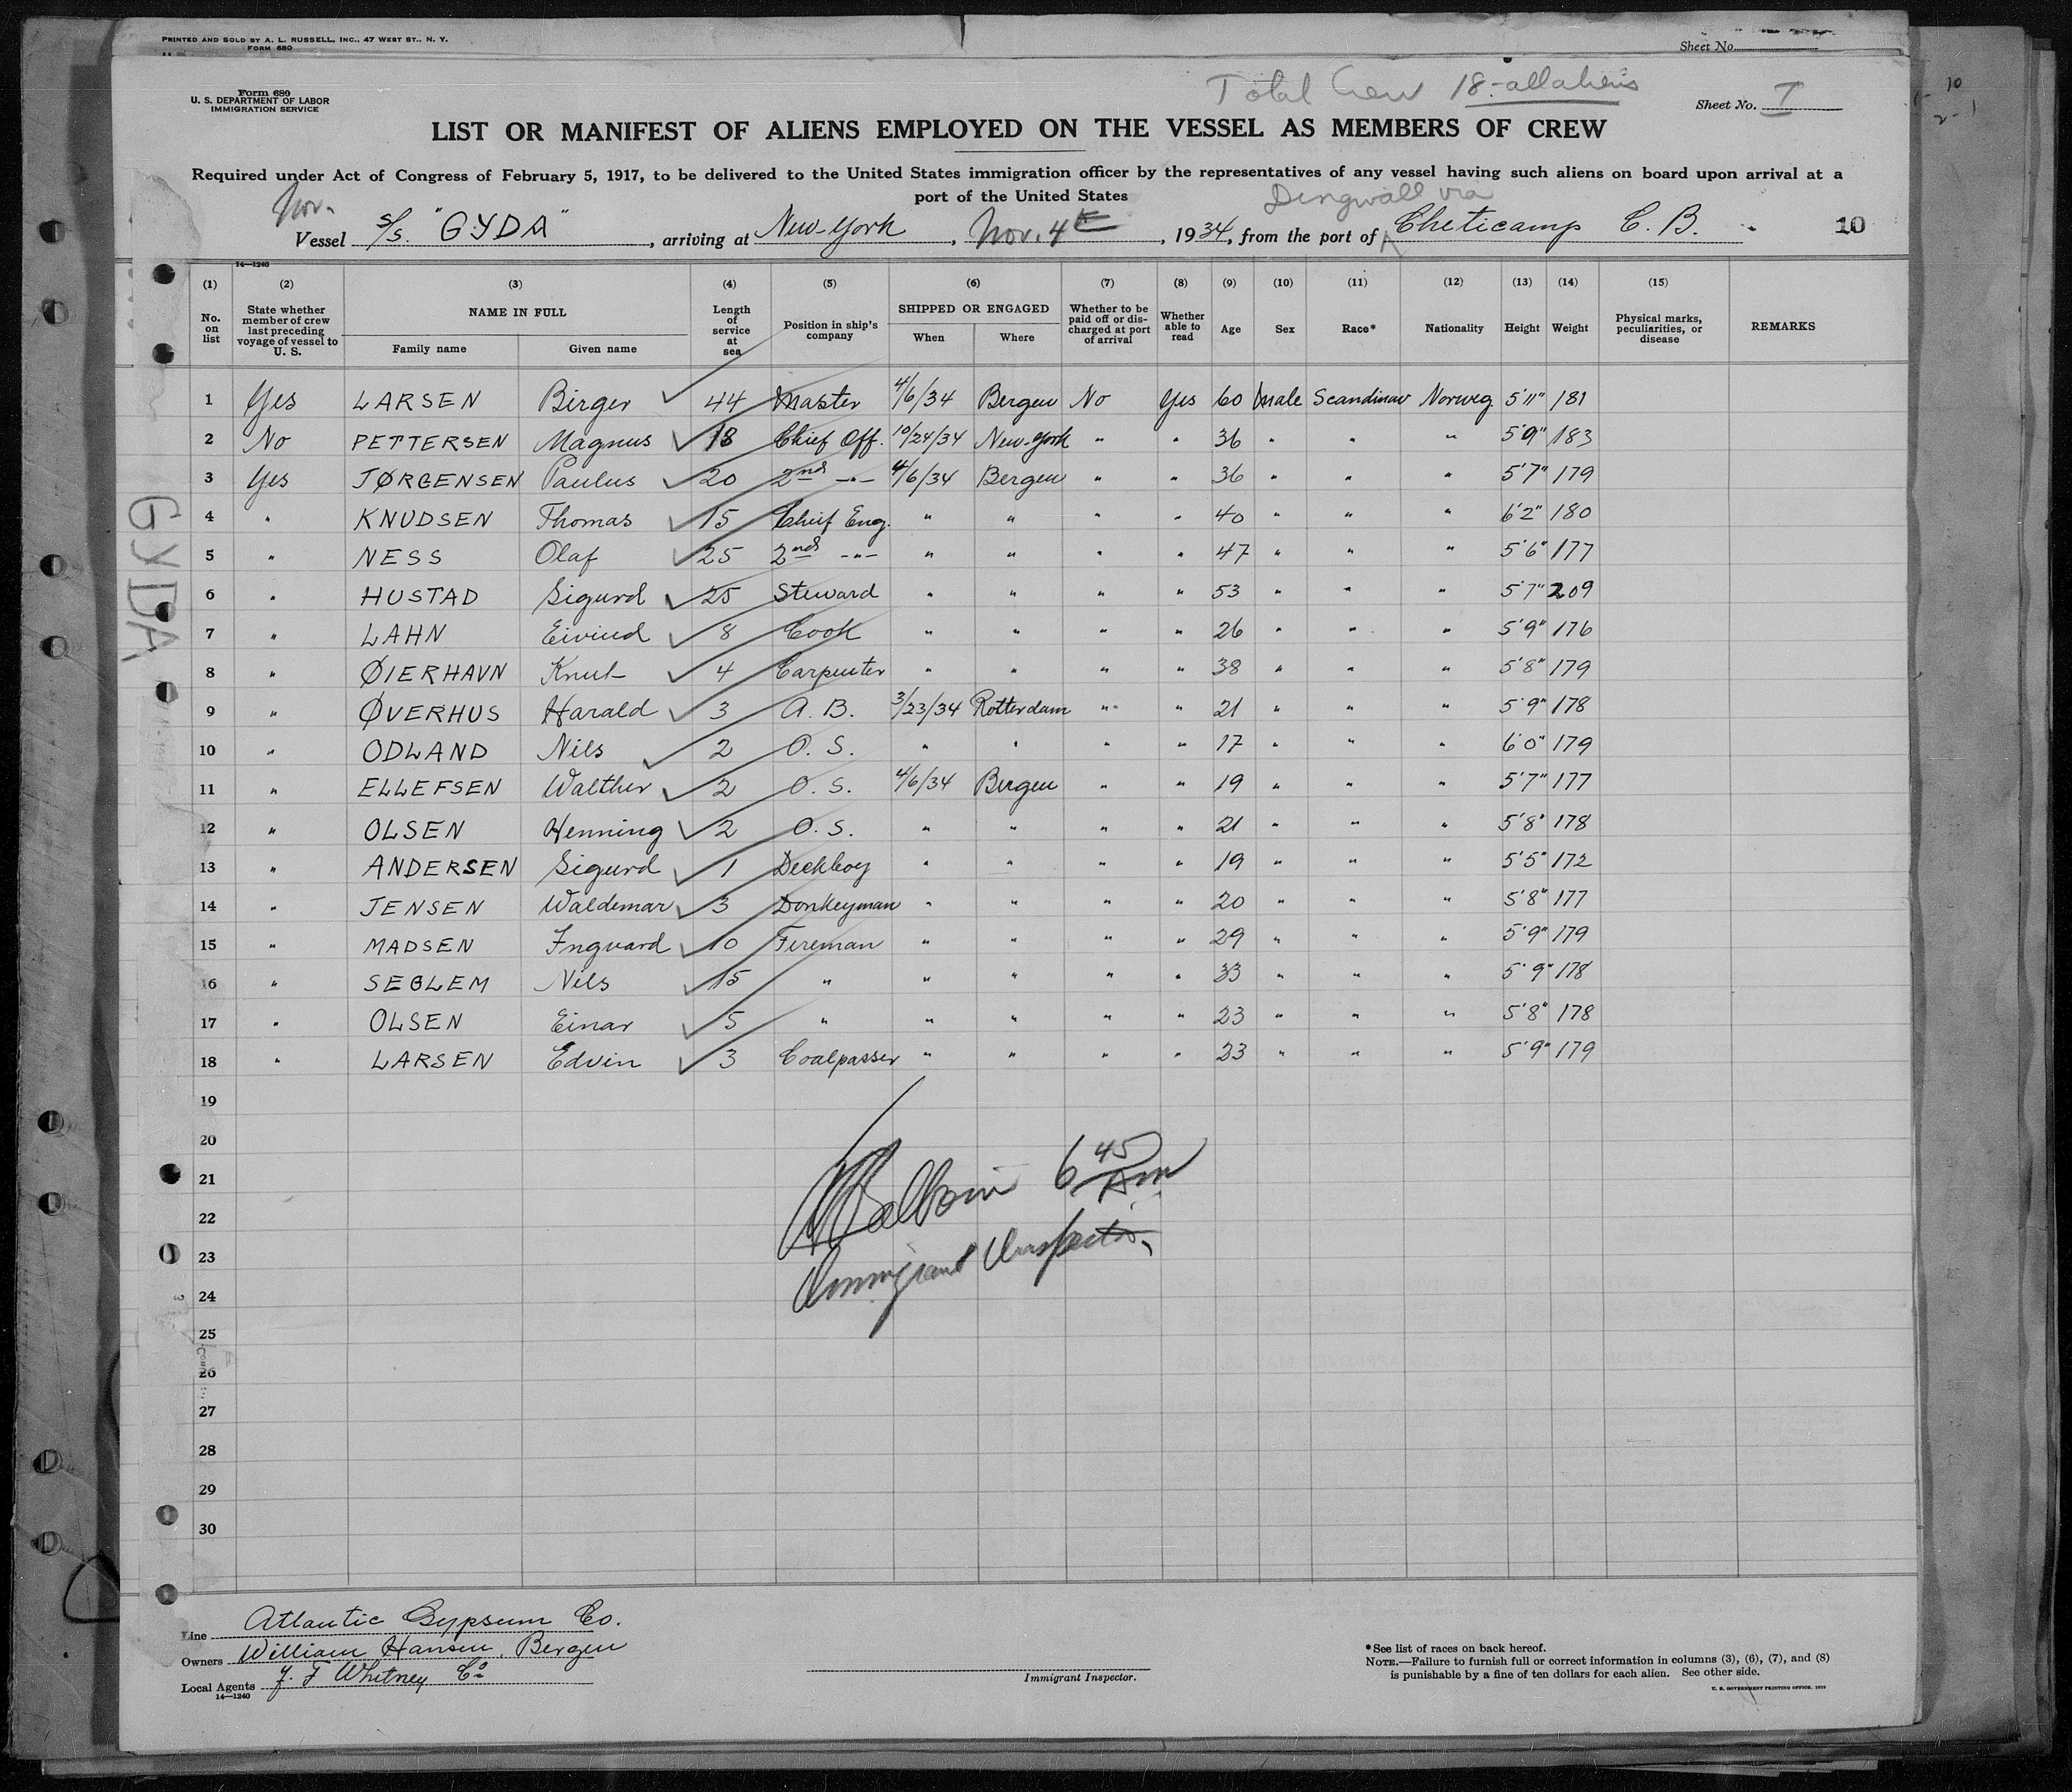 PRINTED AND SOLD BY A. L. RUSSELL, INC., 47 WEST ST., N. Y.
FORM 680
Sheet No.
Form 680
U. S. DEPARTMENT OF LABOR
IMMIGRATION SERVICE
Total Crew 18 - all aliens
Sheet No. I
LIST OR MANIFEST OF ALIENS EMPLOYED ON THE VESSEL AS MEMBERS OF CREW
Required under Act of Congress of February 5, 1917, to be delivered to the United States immigration officer by the representatives of any vessel having such aliens on board upon arrival at a
port of the United States
Nor. Dingwall via
Vessel S/S. "GYDA", arriving at New-York, Nov. 4th, 1934, from the port of Cheticamp C. B. 10
14—1240
(1) (2) (3) (4) (5) (6) (7) (8) (9) (10) (11) (12) (13) (14) (15)
No. on list State whether member of crew last preceding voyage of vessel to U. S. NAME IN FULL Family name Given name Length of service at sea Position in ship's company SHIPPED OR ENGAGED When Where Whether to be paid off or discharged at port of arrival Whether able to read Age Sex Race* Nationality Height Weight Physical marks, peculiarities, or disease REMARKS
1 Yes LARSEN Birger 44 Master 4/6/34 Bergen No Yes 60 Male Scandinav Norweg. 5'11" 181
2 No PETTERSEN Magnus 18 Chief Off. 10/24/34 New-York " " 36 " " " 5'9" 183
3 Yes JØRGENSEN Paulus 20 2nd -"- 4/6/34 Bergen " " 36 " " " 5'7" 179
4 " KNUDSEN Thomas 15 Chief Eng. " " " " 40 " " " 6'2" 180
5 " NESS Olaf 25 2nd -"- " " " " 47 " " " 5'6" 177
6 " HUSTAD Sigurd 25 Steward " " " " 53 " " " 5'7" 209
7 " LAHN Eivind 8 Cook " " " " 26 " " " 5'9" 176
8 " ØIERHAVN Knut 4 Carpenter " " " " 38 " " " 5'8" 179
9 " ØVERHUS Harald 3 A. B. 3/23/34 Rotterdam " " 21 " " " 5'9" 178
10 " ODLAND Nils 2 O. S. " " " " 17 " " " 6'0" 179
11 " ELLEFSEN Walther 2 O. S. 4/6/34 Bergen " " 19 " " " 5'7" 177
12 " OLSEN Henning 2 O. S. " " " " 21 " " " 5'8" 178
13 " ANDERSEN Sigurd 1 Deckboy " " " " 19 " " " 5'5" 172
14 " JENSEN Waldemar 3 Donkeyman " " " " 20 " " " 5'8" 177
15 " MADSEN Ingvard 10 Fireman " " " " 29 " " " 5'9" 179
16 " SEGLEM Nils 15 " " " " " 33 " " " 5'9" 178
17 " OLSEN Einar 5 " " " " " 23 " " " 5'8" 178
18 " LARSEN Edvin 3 Coalpasser " " " " 23 " " " 5'9" 179
19
20
21
22
23
24
25
26
27
28
29
30
GYDA
Baldwin 6 45 AM
Immigrant Inspector
Line Atlantic Gypsum Co.
Owners William Hansen, Bergen
Local Agents J. F Whitney Co
14—1240
Immigrant Inspector.
*See list of races on back hereof.
NOTE.—Failure to furnish full or correct information in columns (3), (6), (7), and (8)
is punishable by a fine of ten dollars for each alien. See other side.
U. S. GOVERNMENT PRINTING OFFICE.